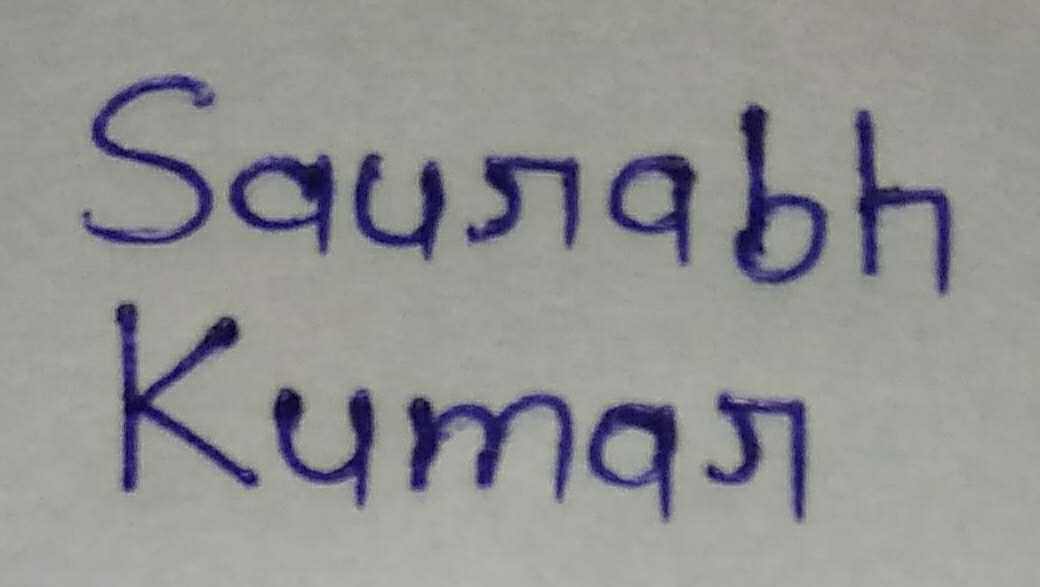 Saurabh
Kumar